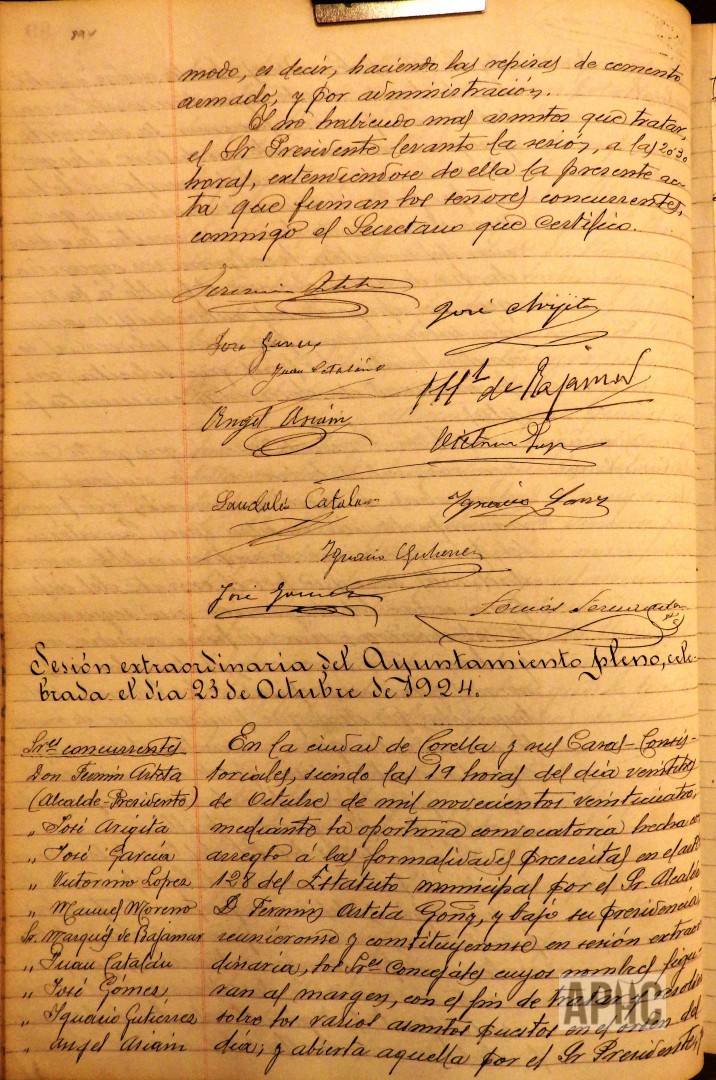 89v
modo, es decir, haciendo las repisas de cemento
armado, y por administración.
Y no habiendo mas asuntos que tratar,
el Sr Presidente levanto la sesión, a las 20'30
horas, extendiendose de ella la presente ac-
ta que firman los señores concurrentes,
conmigo el Secretario que certifico.
José Arigita
Juan Catalán
M.l de Bajamar
Angel Arián
Victorino Lopez
Catalan
Ignacio Sanz
Ignacio Gutierrez
José Gomez
Sesión extraordinaria del Ayuntamiento pleno, cele-
brada el día 23 de Octubre de 1924.
Sres concurrentes
Don Fermin Arteta
(Alcalde-Presidente)
" José Arigita
" José García
" Victorino Lopez
" Manuel Moreno
Sr. Marqués de Bajamar
" Juan Catalán
" José Gómez
" Ignacio Gutierrez
" Angel Arián
En la ciudad de Corella y sus Casas-Consis-
toriales, siendo las 19 horas del día veintitres
de Octubre de mil novecientos veinticuatro,
mediante la oportuna convocatoria hecha con
arreglo á las formalidades prescritas en el art.
128 del Estatuto municipal por el Sr. Alcalde
D Fermin Arteta Goñz, y bajo su presidencia
reunieronse y constituyeronse en sesión extraor-
dinaria, los Sres Concejales cuyos nombres figu-
ran al margen, con el fin de tratar y resolver
sobre los varios asuntos puestos en el orden del
día; y abierta aquella por el Sr Presidente,
APHC